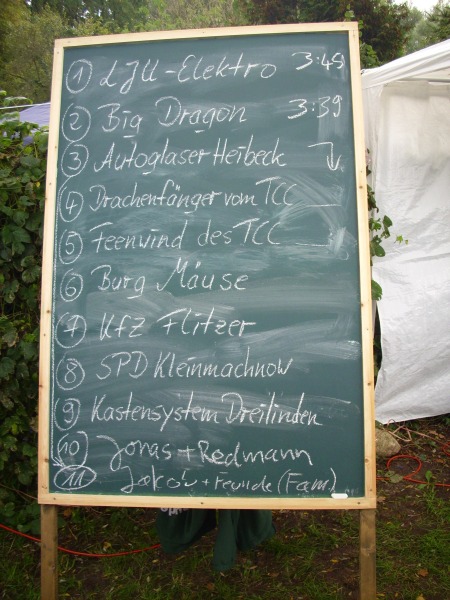 1 LJU-Elektro 3:49
2 Big Dragon 3:39
3 Autoglaser Heibeck
4 Drachenfänger vom TCC
5 Feenwind des TCC
6 Burg Mäuse
7 KfZ Flitzer
8 SPD Kleinmachnow
9 Kastensystem Dreilinden
10 Jonas + Redmann
11 Jakob + Freunde (Fam.)